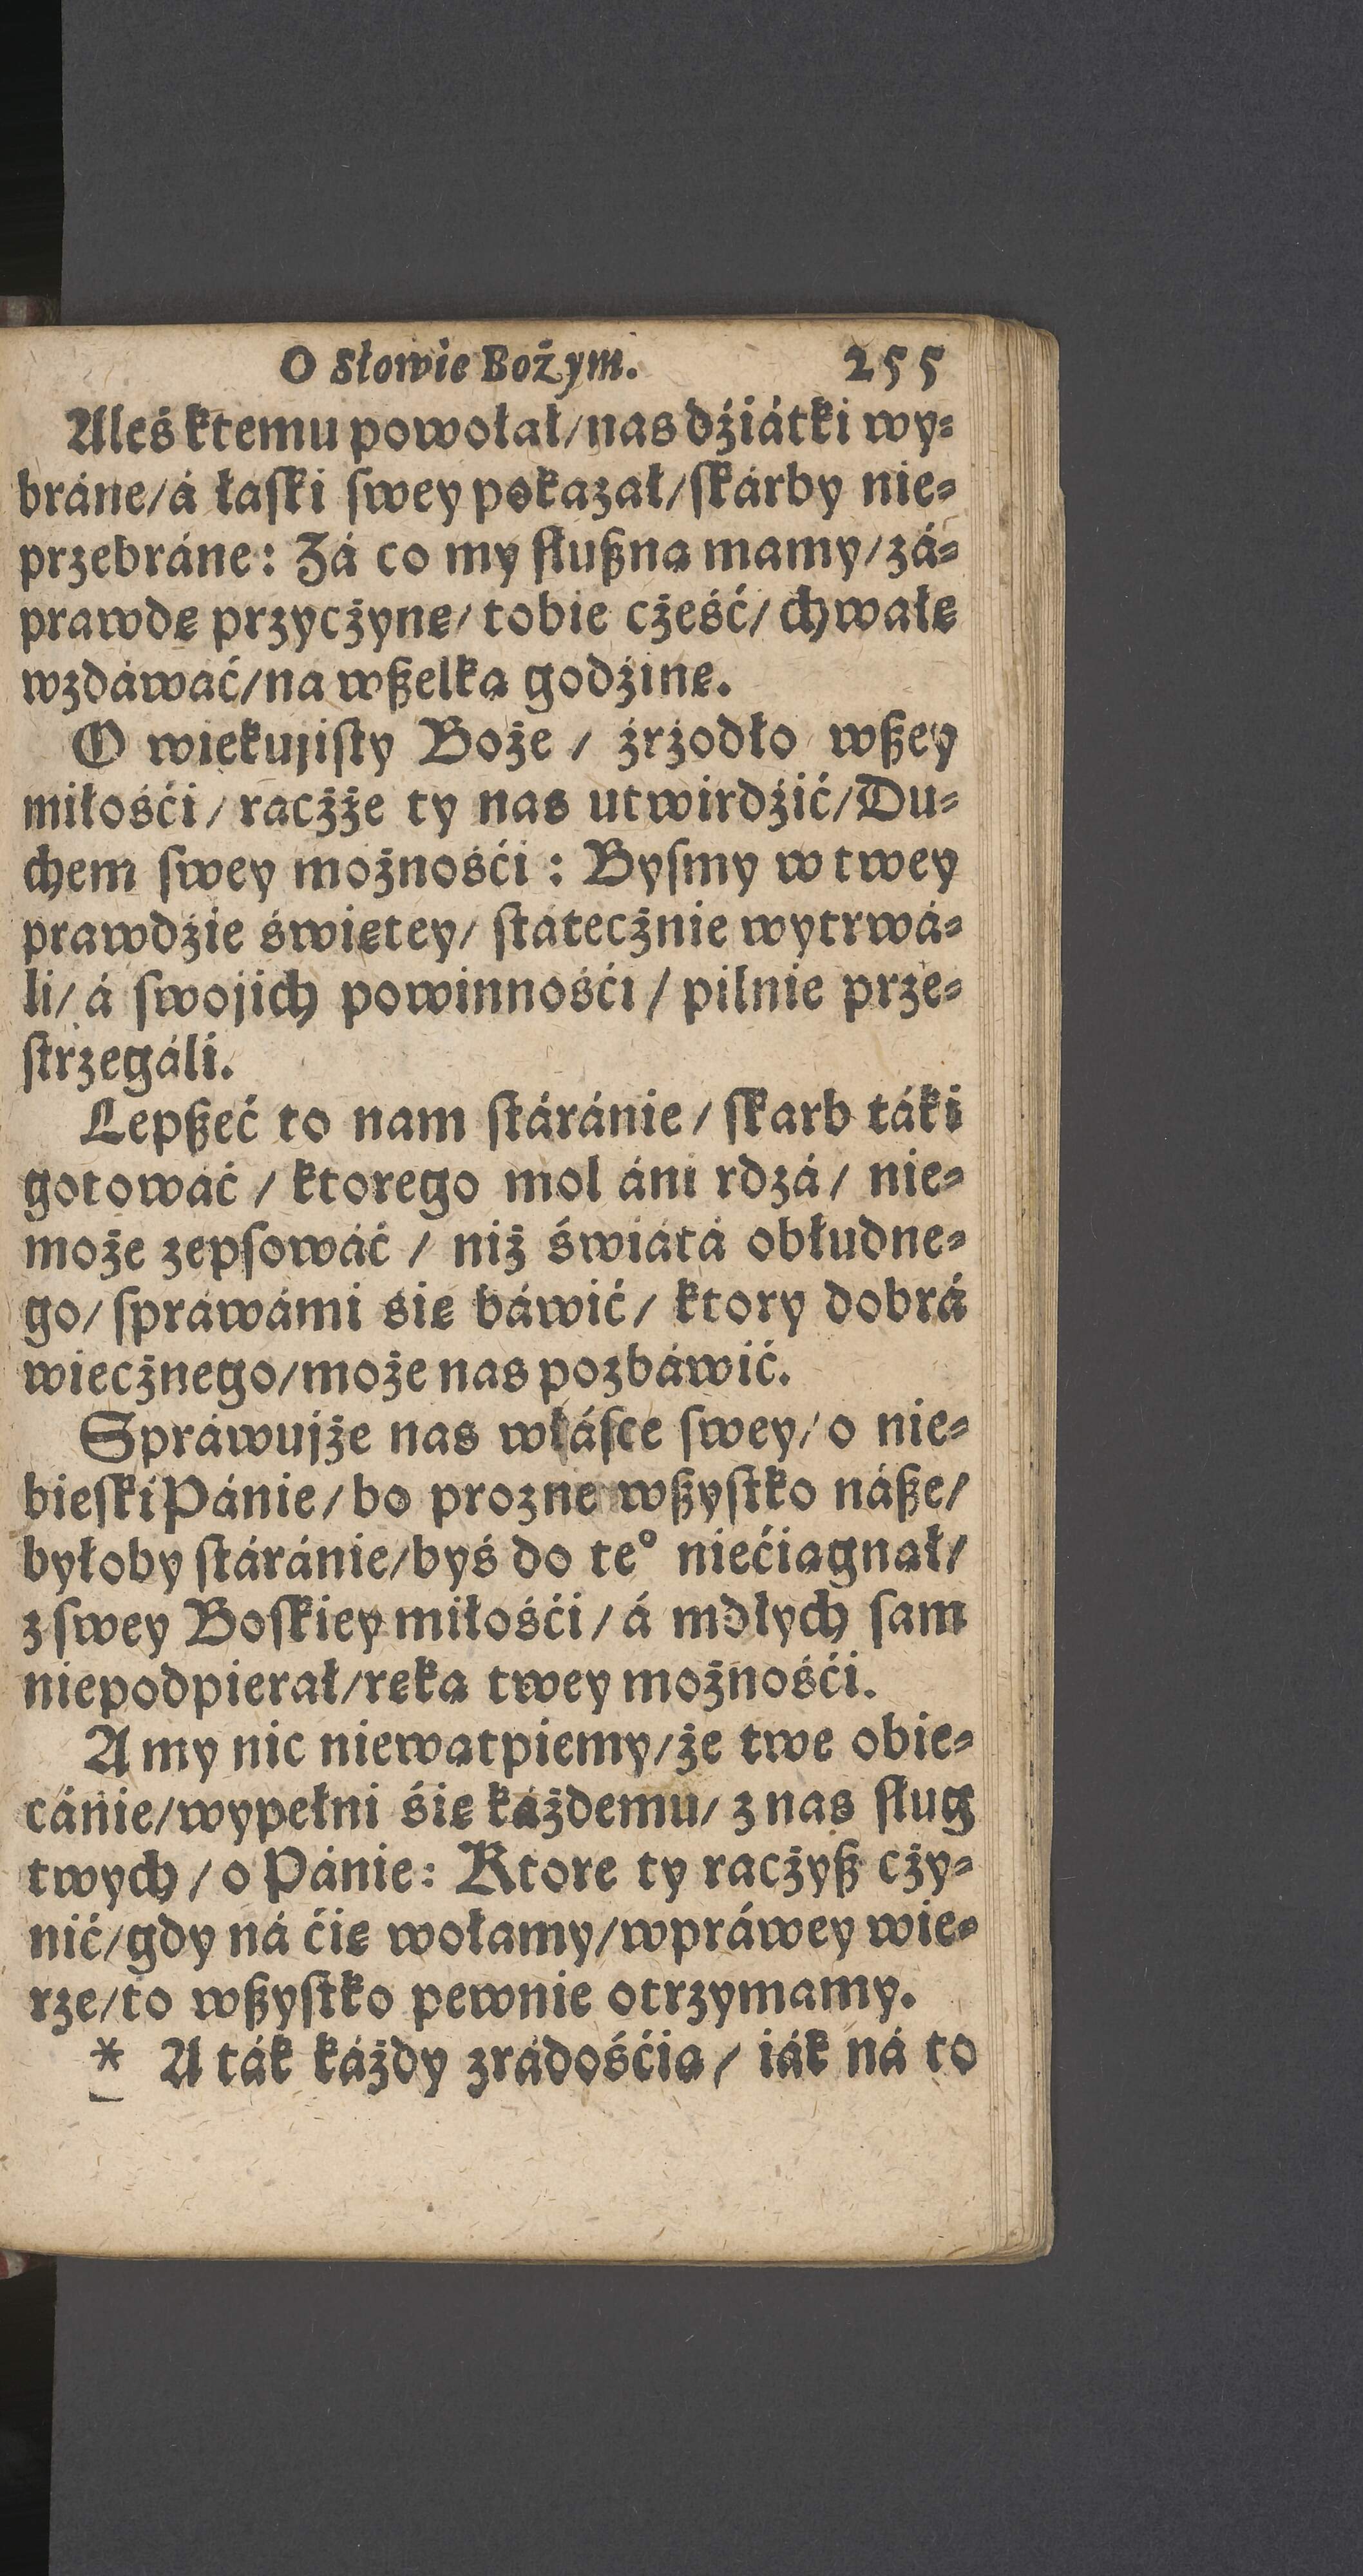 O Słowie Bożym. 255
Aleś ktemu powołał/nas dźiátki wy⸗
bráne/á łaſki ſwey pokazał/ſkárby nie⸗
przebráne: Zá co my ſłußną mamy/zá⸗
prawdę przycżynę/tobie cżeść/chwałę
wzdáwáć/ná wßelką godźinę.
O wiekujiſty Boże / źrzodło wßey
miłośći/racżże ty nas utwirdźić/Du⸗
chem ſwey możnośći: Byſmy w twey
prawdźie świętey/ ſtátecżnie wytrwá⸗
li/á ſwojich powinnośći/pilnie prze⸗
ſtrzegáli.
Lepßeć to nam ſtáránie/ſkarb táki
gotowáć/ktorego mol áni rdzá/ nie⸗
może zepſowáć / niż świátá obłudne⸗
go/ſpráwámi się báwić/ktory dobrá
wiecżnego/może nas pozbáwić.
Spráwujże nas w łáſce ſwey/o nie⸗
bieſki Pánie/bo prozne wßyſtko náße/
byłoby ſtáránie/byś do te° niećiągnął/
z ſwey Boſkiey miłośći/á mdłych ſam
niepodpierał/ręką twey możnośći.
A my nic niewątpiemy/że twe obie⸗
cánie/wypełni śię káżdemu/z nas ſług
twych/o Pánie: Ktore ty racżyß cży⸗
nić/gdy ná ćię wołamy/w práwey wie⸗
rze/to wßyſtko pewnie otrzymamy.
* A ták káżdy z rádośćią/ iák ná to